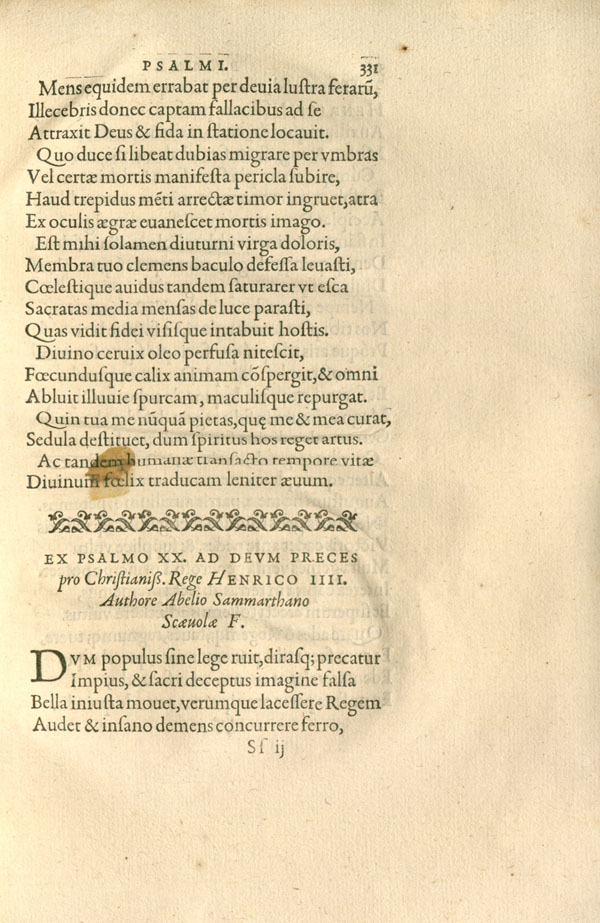 PSALMI. 331
Mens equidem errabat per deuia luſtra ferarū,
Illecebris donec captam fallacibus ad ſe
Attraxit Deus & fida in ſtatione locauit.
Quo duce ſi libeat dubias migrare per vmbras
Vel certæ mortis manifeſta pericla ſubire,
Haud trepidus mēti arrectæ timor ingruet, atra
Ex oculis ægræ euaneſcet mortis imago.
Eſt mihi ſolamen diuturni virga doloris,
Membra tuo clemens baculo defeſſa leuaſti,
Cœleſtique auidus tandem ſaturarer vt eſca
Sacratas media menſas de luce paraſti,
Quas vidit fidei viſiſque intabuit hoſtis.
Diuino ceruix oleo perfuſa niteſcit,
Fœcunduſque calix animam cōſpergit, & omni
Abluit illuuie ſpurcam, maculiſque repurgat.
Quin tua me nūquā pietas, quę me & mea curat,
Sedula deſtituet, dum ſpiritus hos reget artus.
Ac tandem humanæ tranſacto tempore vitæ
Diuinum fœlix traducam leniter æuum.
EX PSALMO XX. AD DEVM PRECES
pro Chriſtianiſſ. Rege HENRICO IIII.
Authore Abelio Sammarthano
Scæuolæ F.
DVM populus ſine lege ruit, diraſq; precatur
Impius, & ſacri deceptus imagine falſa
Bella iniuſta mouet, verumque laceſſere Regem
Audet & inſano demens concurrere ferro,
Sſ ij